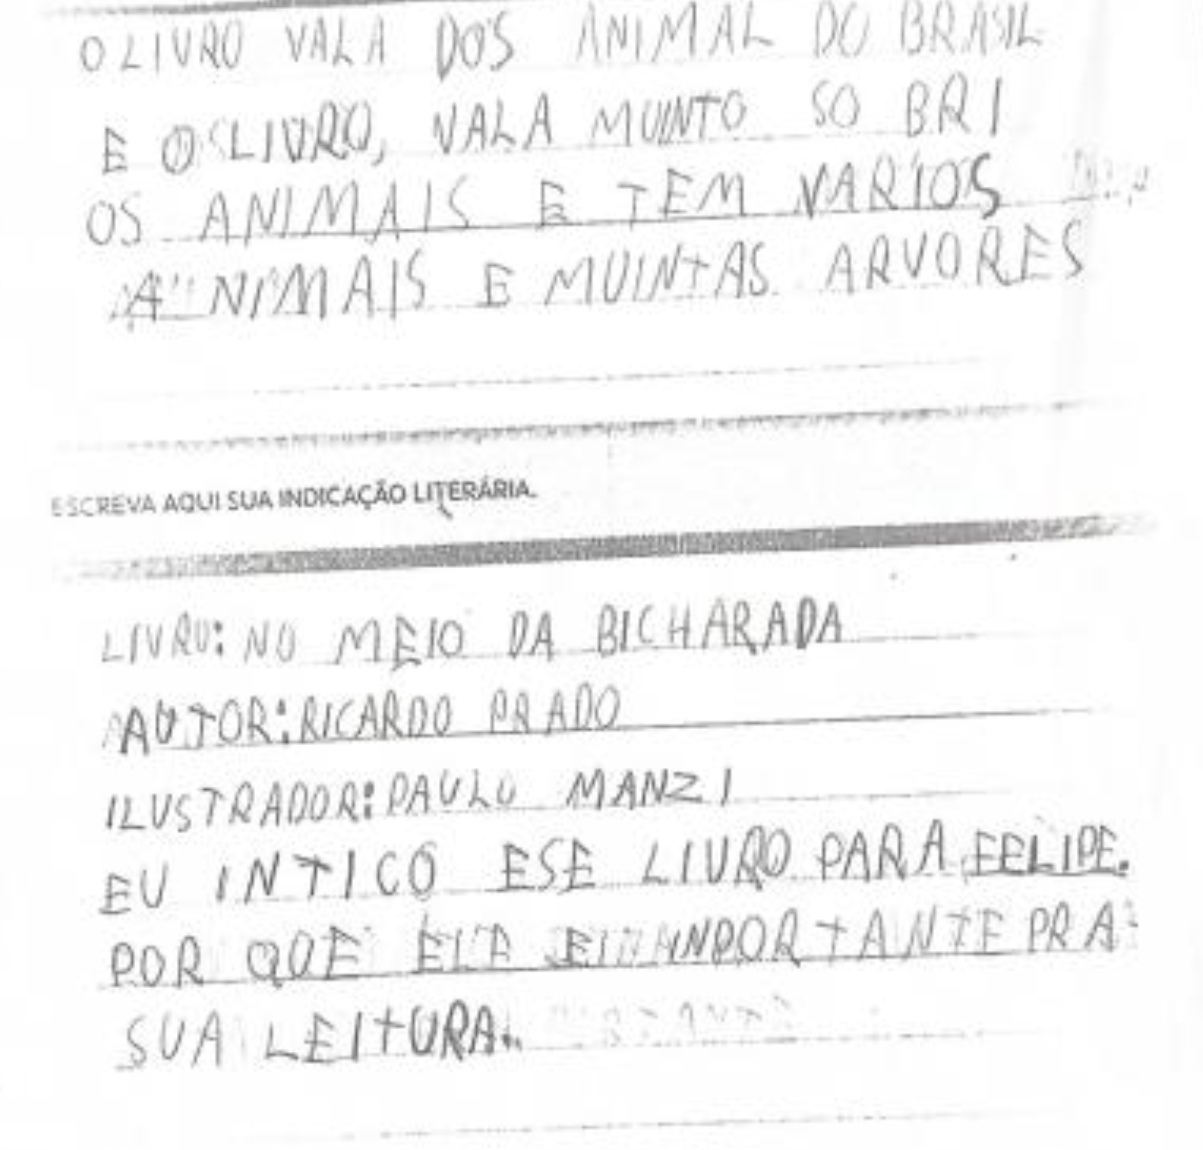 O LIVRO VALA DOS ANIMAL DO BRASIL
E O LIVRO, VALA MUINTO SO BRI
OS ANIMAIS E TEM VARIOS
ANIMAIS E MUINTAS ARVORES
ESCREVA AQUI SUA INDICAÇÃO LITERÁRIA.
LIVRO: NO MEIO DA BICHARADA
AUTOR: RICARDO PRADO
ILUSTRADOR: PAULO MANZI
EU INTICO ESE LIVRO PARA FELIPE.
POR QUE PRA
SUA LEITURA.